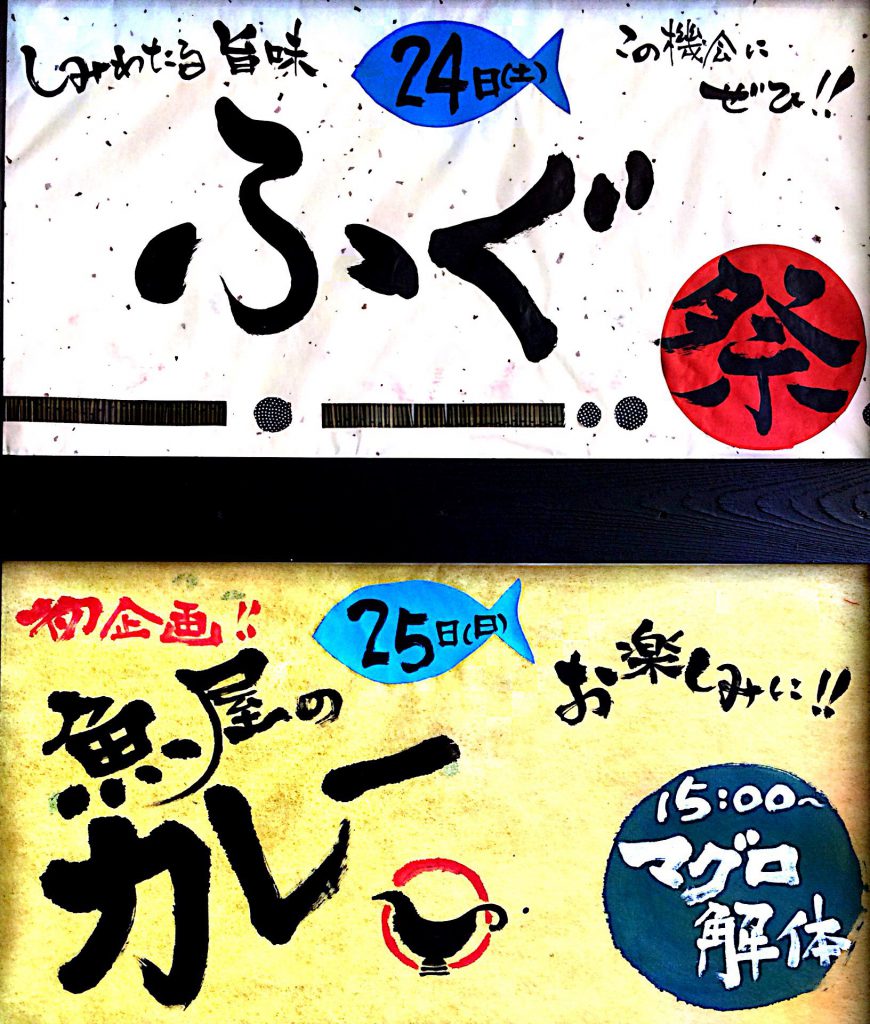 しみわたる旨味
24日(土)
この機会に
ぜひ!!
ふぐ
祭
初企画!!
25日(日)
お楽しみに!!
魚屋の
カレー
15:00～
マグロ
解体